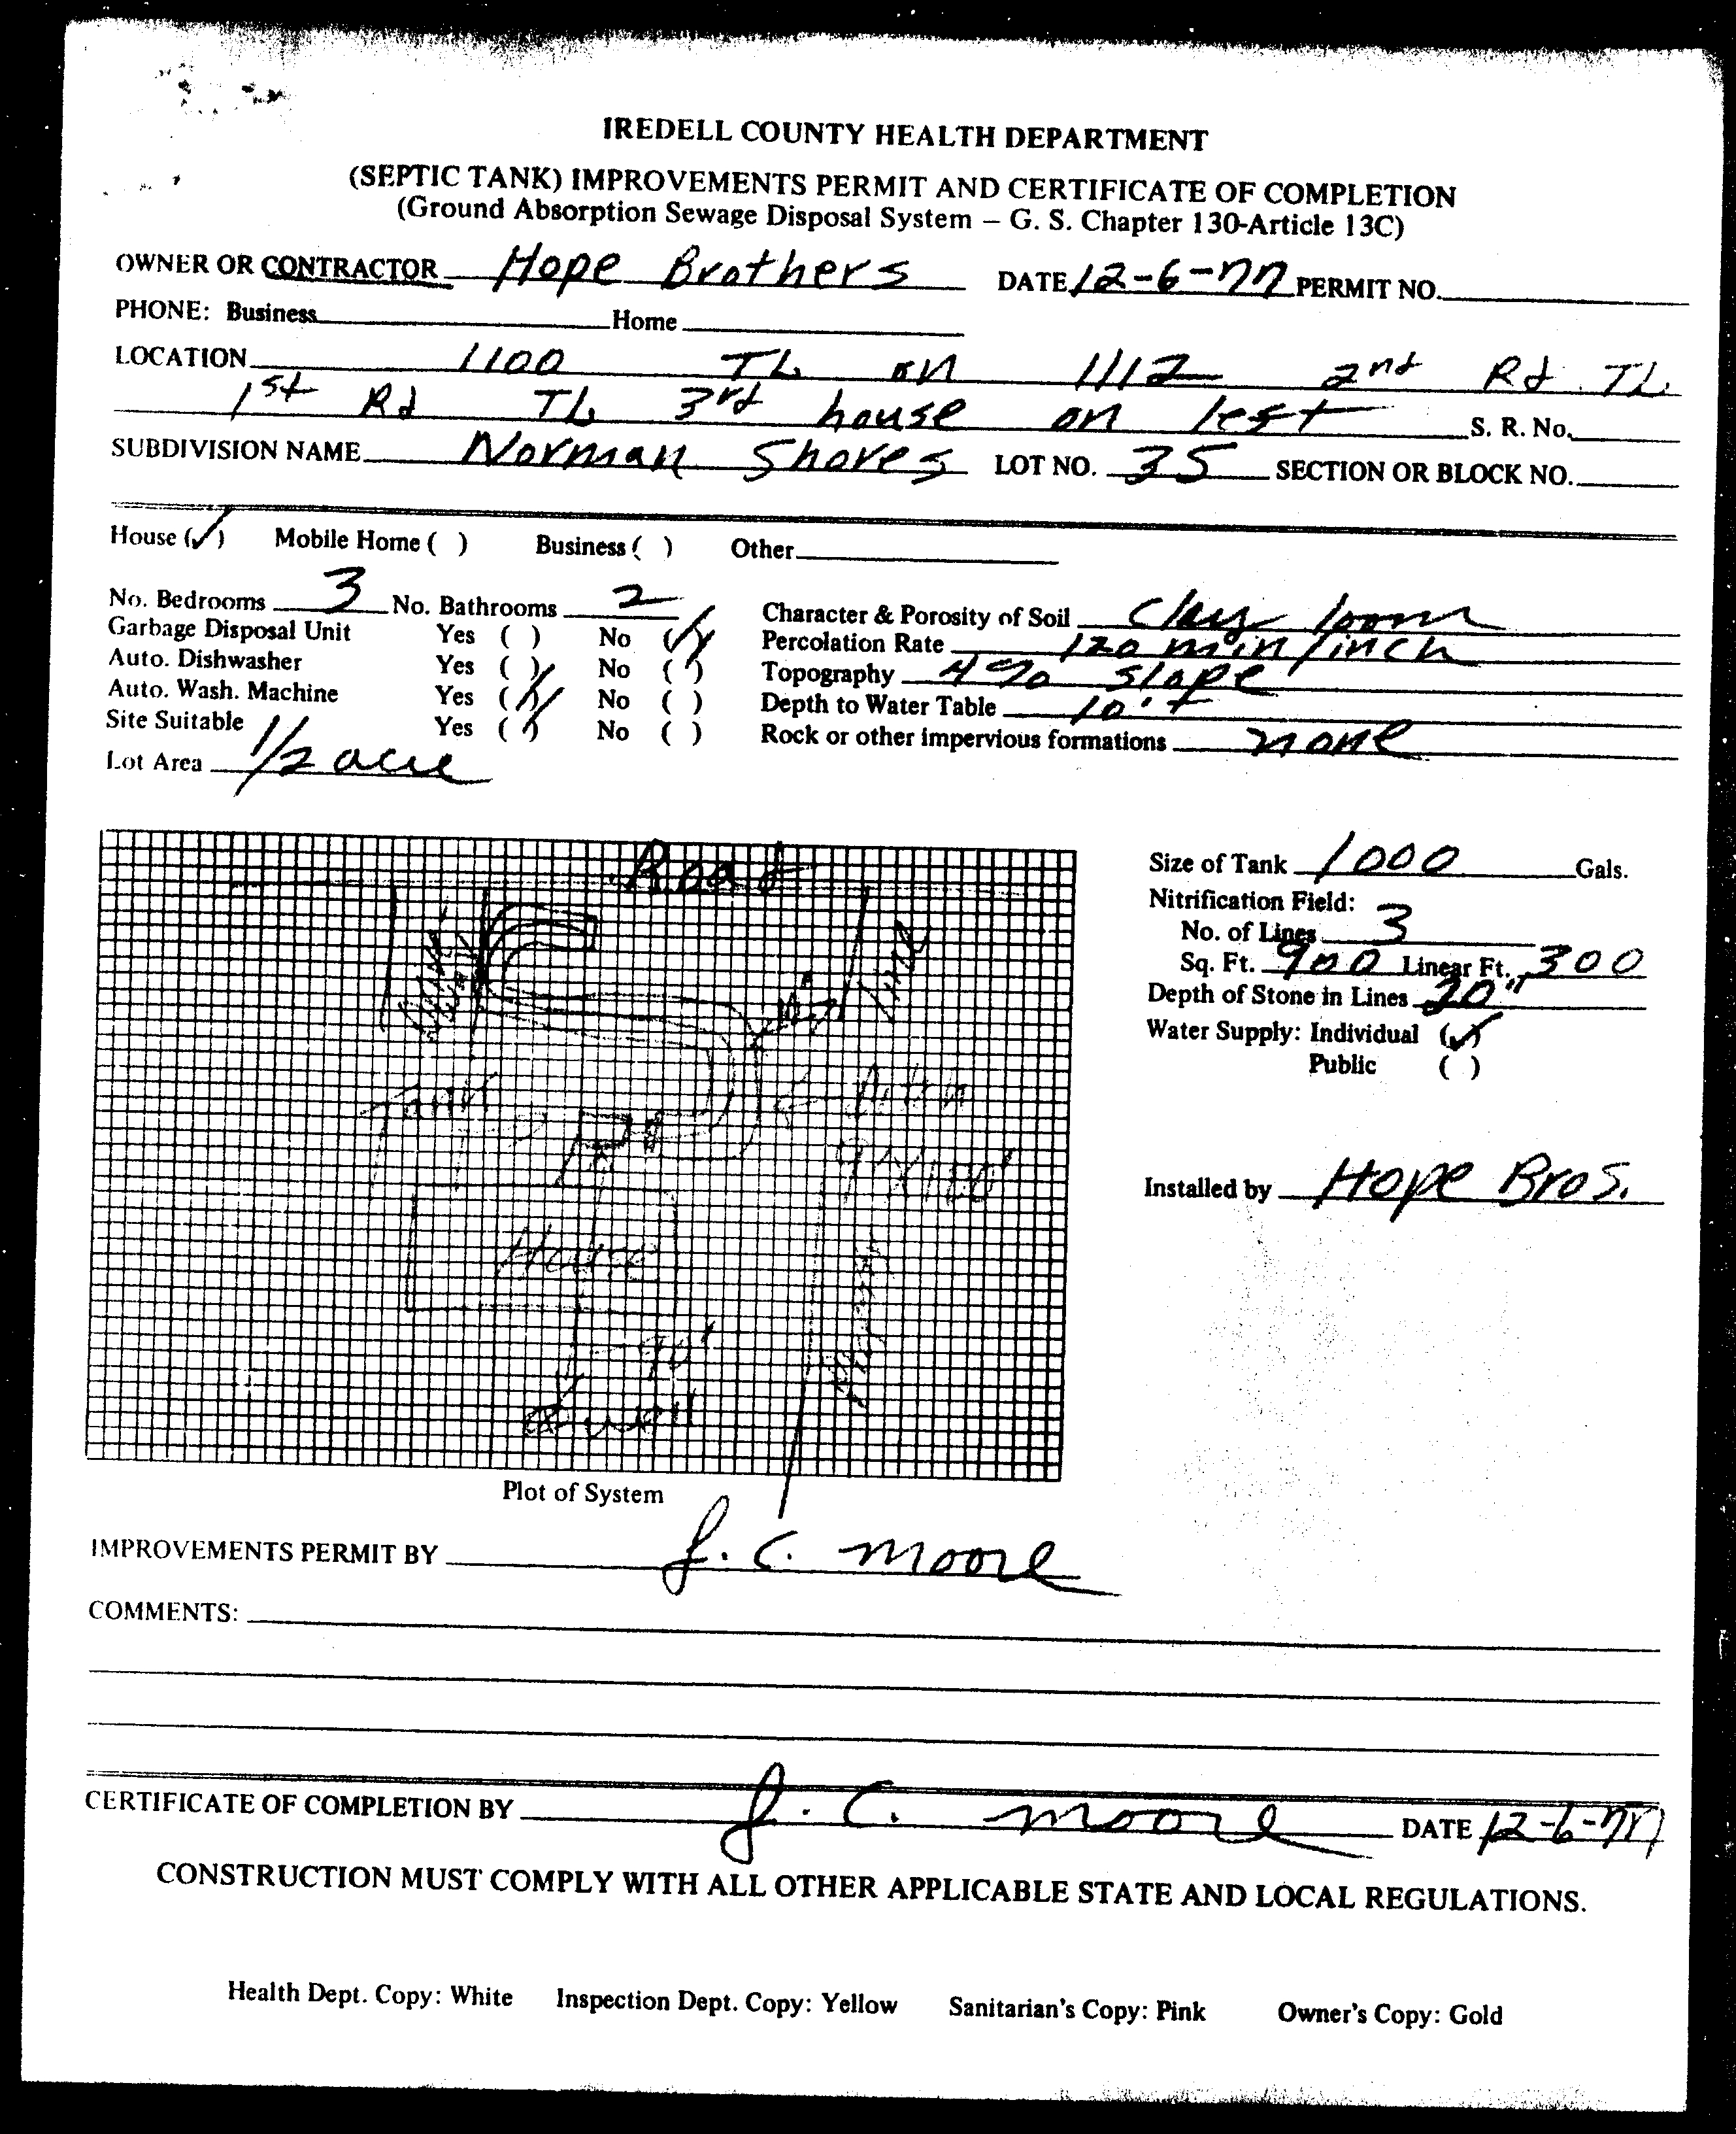 IREDELL COUNTY HEALTH DEPARTMENT
(SEPTIC TANK) IMPROVEMENTS PERMIT AND CERTIFICATE OF COMPLETION
(Ground Absorption Sewage Disposal System – G. S. Chapter 130-Article 13C)
OWNER OR CONTRACTOR Hope Brothers DATE 12-6-77 PERMIT NO.
PHONE: Business Home
LOCATION 1100 TL on 1112 2nd Rd TL
1st Rd TL 3rd house on left S. R. No.
SUBDIVISION NAME Norman Shores LOT NO. 35 SECTION OR BLOCK NO.
House (✓) Mobile Home ( ) Business ( ) Other
No. Bedrooms 3 No. Bathrooms 2 Character & Porosity of Soil Clay loom
Garbage Disposal Unit Yes ( ) No (✓) Percolation Rate 120 min/inch
Auto. Dishwasher Yes ( ) No ( ) Topography 4% slope
Auto. Wash. Machine Yes (✓) No ( ) Depth to Water Table 10'+
Site Suitable Yes (✓) No ( ) Rock or other impervious formations none
Lot Area 1/2 acre
Road
Size of Tank 1000 Gals.
Nitrification Field:
No. of Lines 3
Line
Sq. Ft. 900 Linear Ft. 300
10'
Depth of Stone in Lines 20"
Water Supply: Individual (✓)
Public ( )
Tank
Installed by Hope Bros.
House
90'
well
Plot of System
IMPROVEMENTS PERMIT BY J. C. Moore
COMMENTS:
CERTIFICATE OF COMPLETION BY J. C. Moore DATE 12-6-77
CONSTRUCTION MUST COMPLY WITH ALL OTHER APPLICABLE STATE AND LOCAL REGULATIONS.
Health Dept. Copy: White Inspection Dept. Copy: Yellow Sanitarian's Copy: Pink Owner's Copy: Gold